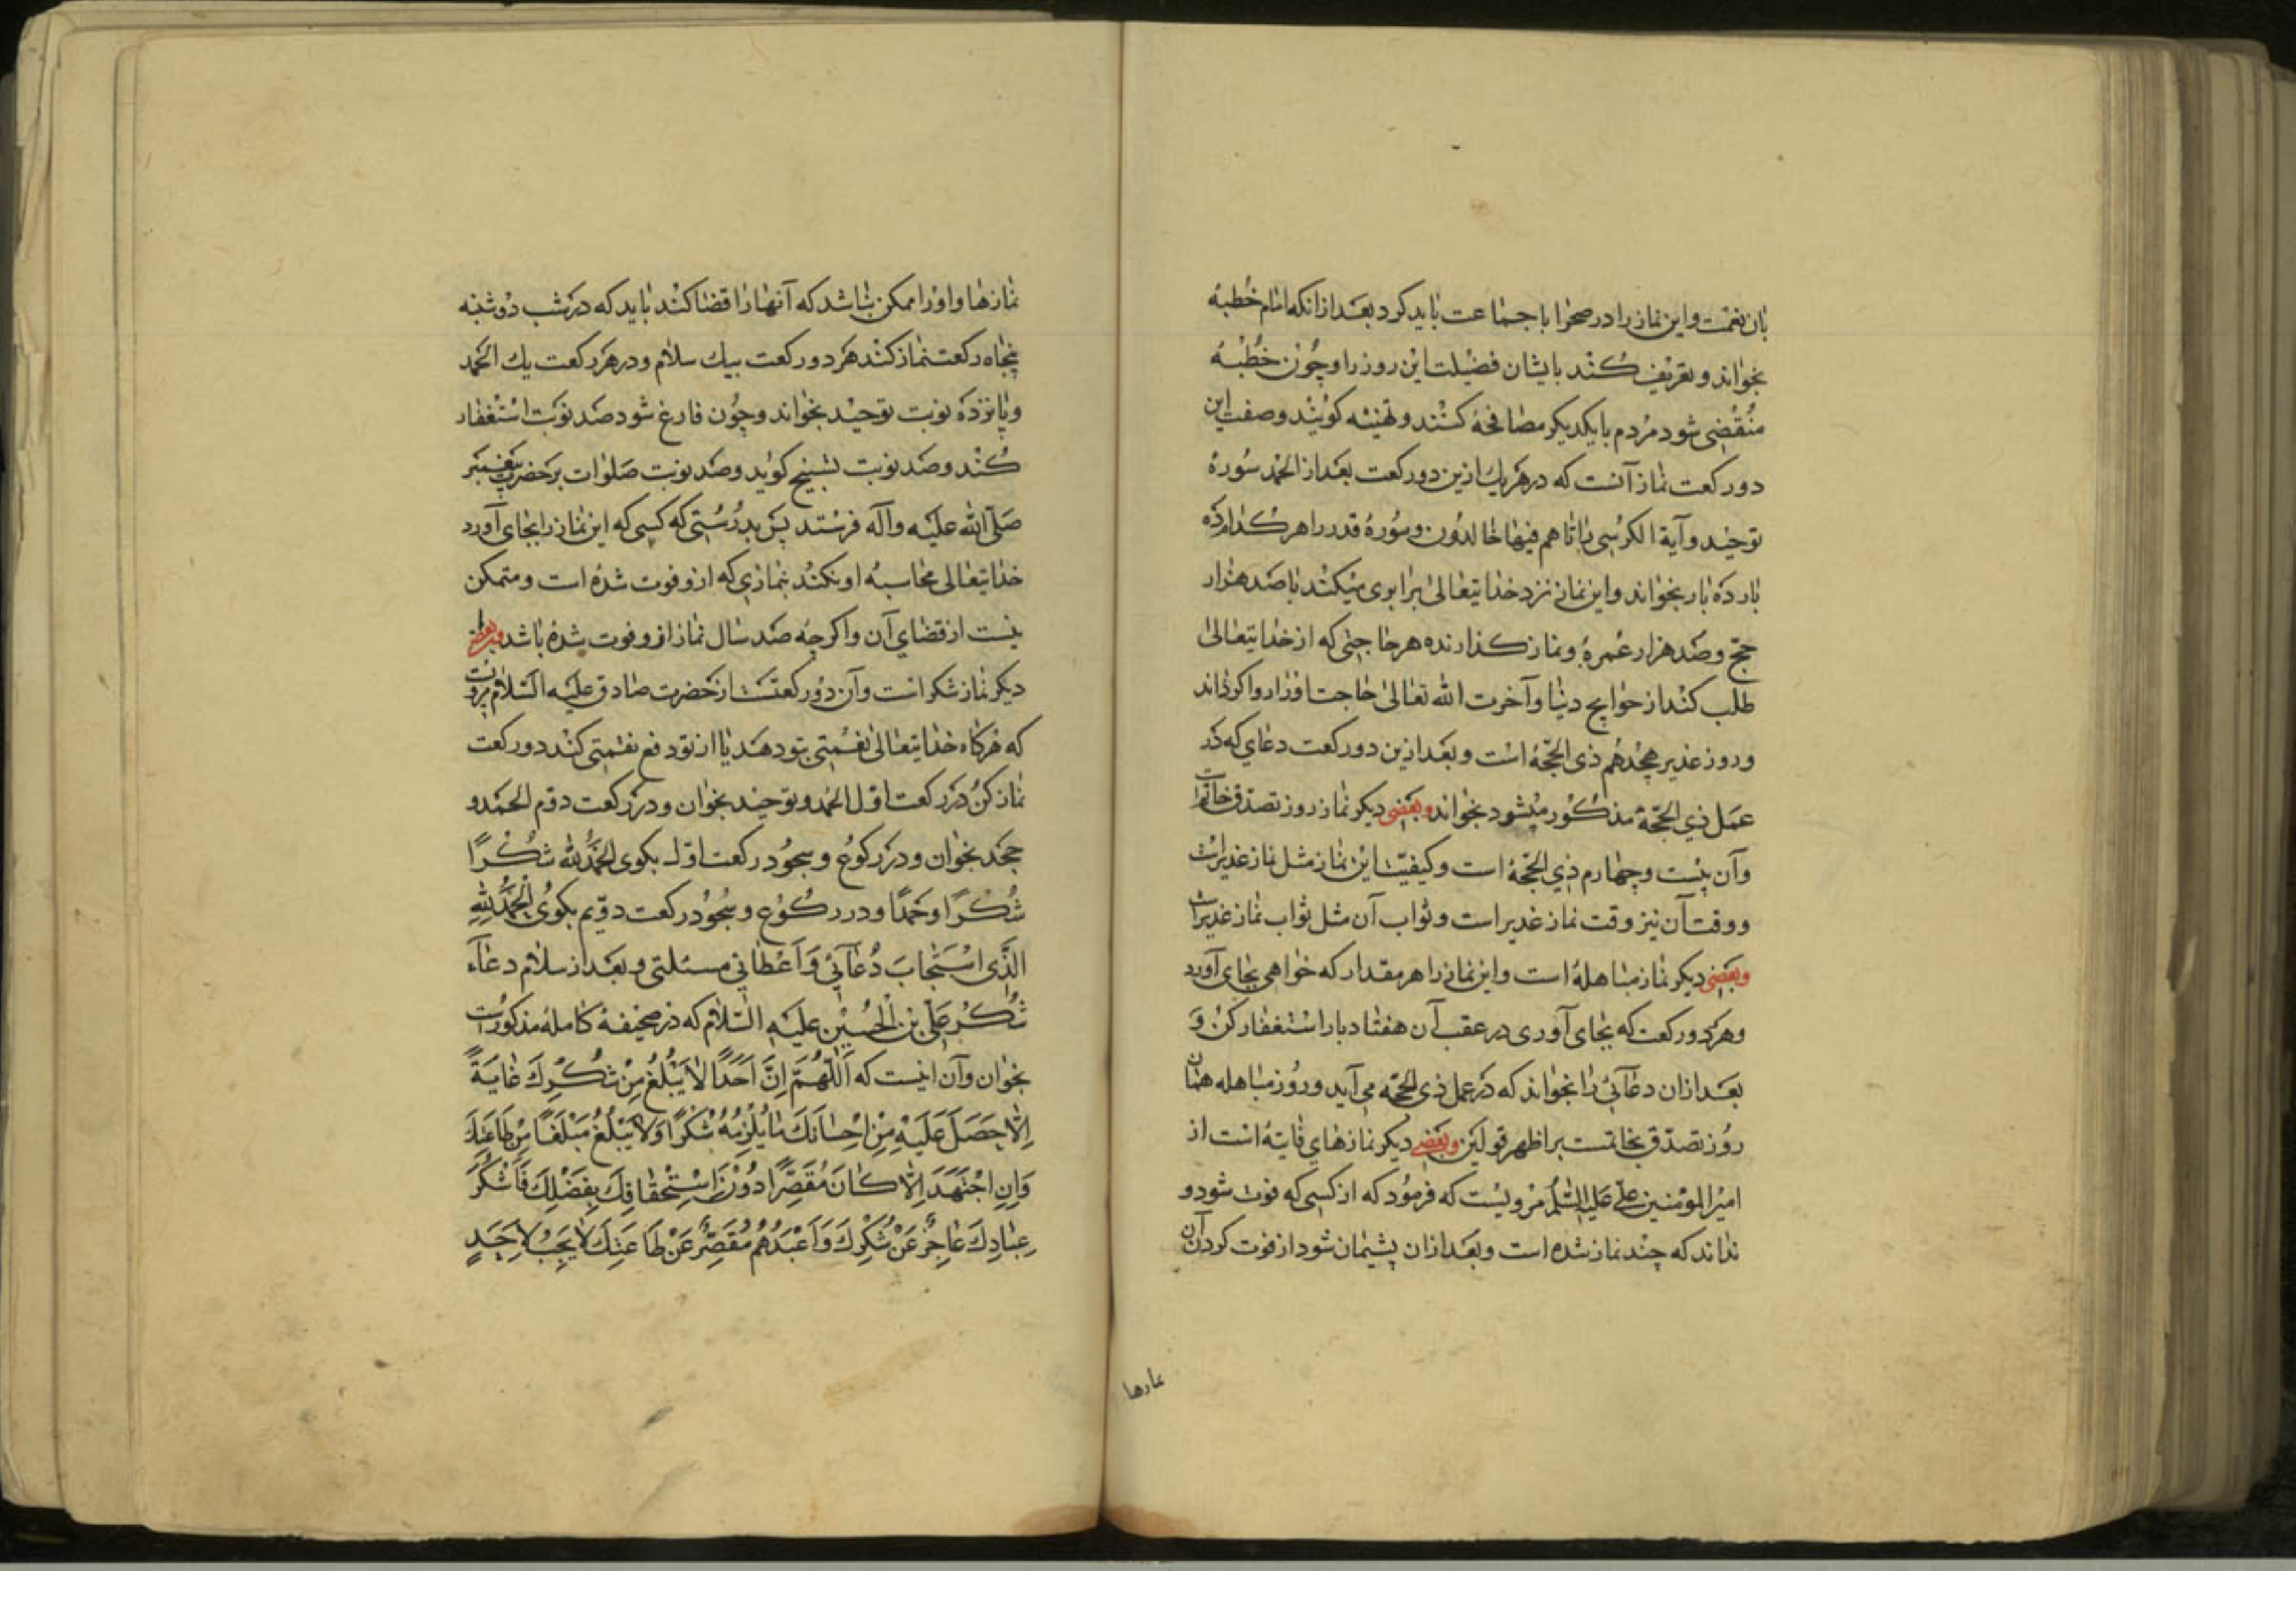 بان نعمت و این نماز را در صحرا با جماعت باید کرد بعد از انکه امام خطبهٔ
بخواند و تعریف کند بایشان فضیلت این روز را و چون خطبهٔ
منقضی شود مردم با یکدیکر مصافحه کنند و تهنیه کویند و صفت این
دو رکعت نماز آنست که در هر یك ازین دو رکعت بعد از الحمد سورهٔ
توحید و آیة الکرسی با تا هم فیها خالدون و سورهٔ قدر را هر کدام ده
بار ده بار بخواند و این نماز نزد خدایتعالی برابری میکند با صد هزار
حج و صد هزار عمره و نماز کذارنده هر حاجتی که از خدایتعالی
طلب کند از حوایج دنیا و آخرت الله تعالی حاجت او را روا کرداند
و روز غدیر هجدهم ذی الحجّه است و بعد ازین دو رکعت دعای که در
عمل ذی الحجّه مذکور میشود بخواند و بعضی دیکر نماز روز تصدق خاتم است
و آن بیست و چهارم ذی الحجّه است و کیفیت این نماز مثل نماز غدیر است
و وقت آن نیز وقت نماز غدیر است و ثواب آن مثل ثواب نماز غدیر است
و بعضی دیکر نماز مباهله است و این نماز را هر مقدار که خواهی بجای آورد
و هر دو رکعت که بجای آوری در عقب آن هفتاد بار استغفار کن و
بعد ازان دعائی را بخواند که در عمل ذی الحجّه می آید و روز مباهله همان
روز تصدّق بخاتمست بر اظهر قولین و بعضی دیکر نمازهای فایته است از
امیر المومنین علی علیه السلم مرویست که فرمود که از کسی که فوت شود و
نداند که چند نماز شده است و بعد ازان پشیمان شود از فوت کردن آن
نمازها
نمازها و او را ممکن باشد که آنها را قضا کند باید که در شب دوشنبه
پنجاه رکعت نماز کند هر دو رکعت بیك سلام و در هر رکعت یك الحمد
و پانزده نوبت توحید بخواند و چون فارغ شود صد نوبت استغفار
کند و صد نوبت تسبیح کوید و صد نوبت صلوات بر حضرت پیغمبر
صلّی الله علیه و آله فرستد پس بدرستی که کسی که این نماز را بجای آورد
خدایتعالی محاسبهٔ او نکند بنمازی که ازو فوت شده است و متمکن
نیست از قضای آن و اکرچه صد سال نماز ازو فوت شده باشد و بعضی
دیکر نماز شکر است و آن دو رکعتست از حضرت صادق علیه السّلام مرویست
که هرکاه خدایتعالی نعمتی بتو دهد یا از تو دفع نقمتی کند دو رکعت
نماز کن در رکعت اوّل الحمد و توحید بخوان و در رکعت دوّم الحمد و
جحد بخوان و در رکوع و سجود رکعت اوّل بکوی الحمد لله شُکْرًا
شُکْرًا و حَمْدًا و در رکوع و سجود رکعت دوّم بکوی الحمد لله
الَّذِی اسْتَجَابَ دُعَآئِی وَ اَعْطَانِی مسئلتی و بعد از سلام دعآء
شکر علی بن الحسین علیه السّلام که در صحیفهٔ کامله مذکور است
بخوان و آن اینست که اَللّٰهُمَّ اِنَّ اَحَدًا لَا یَبْلُغُ مِنْ شُکْرِكَ غَایَةً
اِلَّا حَصَلَ عَلَیْهِ مِنْ اِحْسَانِكَ مَا یُلْزِمُهُ شُکْرًا وَلَا یَبْلُغُ مَبْلَغًا مِنْ طَاعَتِكَ
وَ اِنِ اجْتَهَدَ اِلَّا کَانَ مُقَصِّرًا دُونَ اسْتِحْقَاقِكَ بِفَضْلِكَ فَاَشْکَرُ
عِبَادِكَ عَاجِزٌ عَنْ شُکْرِكَ وَ اَعْبَدُهُمْ مُقَصِّرٌ عَنْ طَاعَتِكَ لَا یَجِبُ لِاَحَدٍ